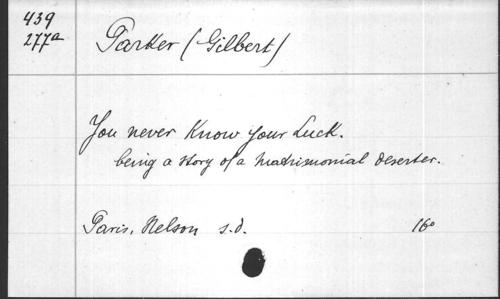 439
277a
Parker (Gilbert)
You never Know your Luck.
being a story of a matrimonial deserter.
Paris, Nelson s.d. 16°